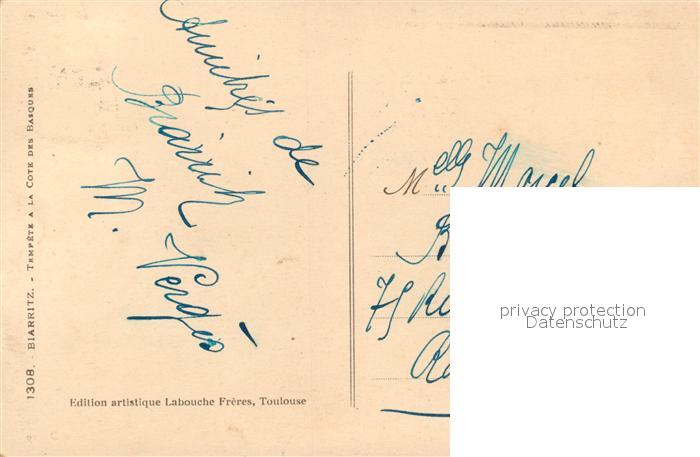 1308. - BIARRITZ. - TEMPÊTE A LA COTE DES BASQUES
Amitiés de
Biarritz
M. Vergès
Edition artistique Labouche Frères, Toulouse
Melle Marcel
B
75 Ru
privacy protection
Datenschutz